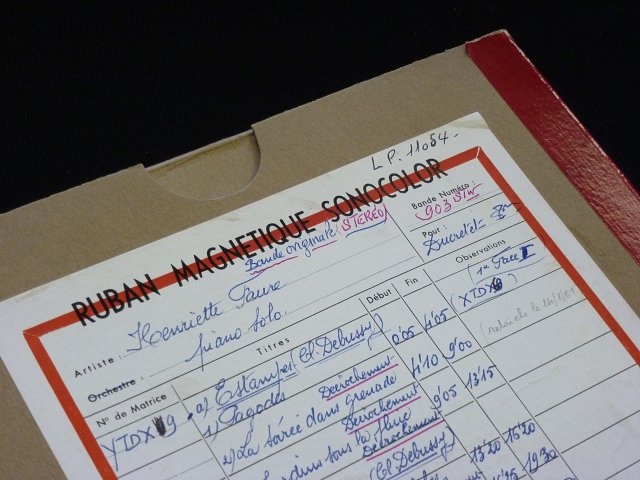 L.P. 11054-
RUBAN MAGNETIQUE SONOCOLOR
Bande originale (STEREO)
Bande Numéro :
903 S/w
Pour :
Ducretet
Artiste : Henriette Faure
piano solo.
Orchestre :
Observations
(1re Face I
(XTDX
N° de Matrice
Titres
Début
Fin
XTDX 9
a) Estampes (Cl. Debussy)
1) Pagodes
0'05
4'05
Décrochement
2) La soirée dans grenade
4'10
9'00
Décrochement
Jardins sous la pluie
9'05
13'15
Décrochement
(Cl. Debussy)
13'20
15'20
19'30